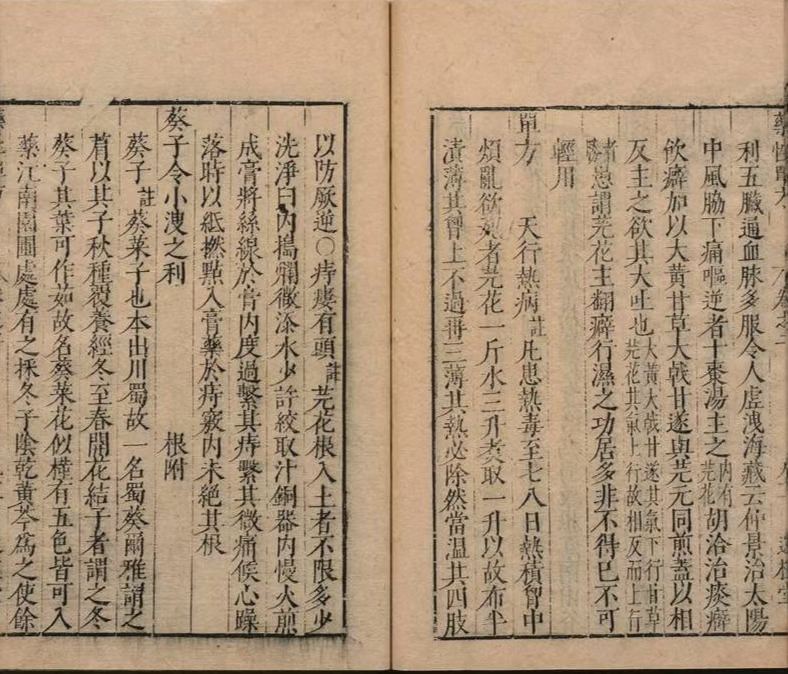 利五臟通血脉多服令人虛洩海藏云仲景治太陽
中風脇下痛嘔逆者十棗湯主之內有芫花胡洽治痰癖
飲癖加以大黃甘草大戟甘遂與芫元同煎蓋以相
反主之欲其大吐也大黃大戟甘遂其氣下行甘草芫花其氣上行故相反而上行
患謂芫花主翻癖行濕之功居多非不得已不可
輕用
單方 天行熱病註凡患熱毒至七八日熱積胷中
煩亂欲死者芫花一斤水三升煑取一升以故布半
漬薄其胷上不過再三薄其熱必除然當温其四肢
以防厥逆〇痔瘻有頭註芫花根入土者不限多少
洗淨臼內搗爛微添水少許絞取汁銅器內慢火煎
成膏將絲線於膏內度過繫其痔繫其微痛候心躁
落時以紙撚點入膏藥於痔竅內未絕其根
葵子令小溲之利 根附
葵子註葵菜子也本出川蜀故一名蜀葵爾雅謂之
莃以其子秋種覆養經冬至春開花結子者謂之冬
葵子其葉可作茹故名葵菜花似槿有五色皆可入
藥江南園圃處處有之採冬子陰乾黃芩爲之使餘